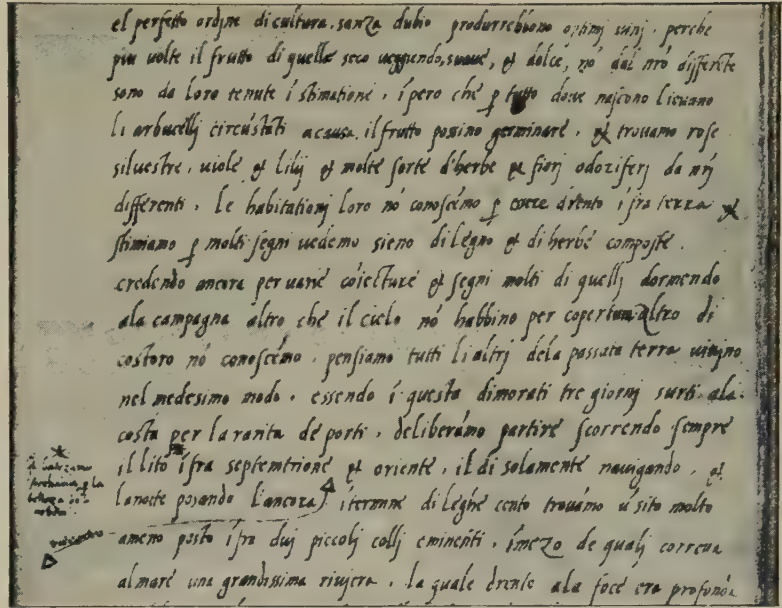 el perfetto ordine di cultura. sanza dubio produrrebbono optimj vinj. perche
piu volte il frutto di quelle seco veggiendo, suave, & dolce, nō dal nrō differēte
sono da loro tenute ī stimatione. īpero chē p tutto dove nascono lievano
li arbucellj circūstāti a causa il frutto possino germinare. & trovamo rose
silvestre. viole & lilij & molte sorte d'herbe & fiorj odoriferj da nrj
differenti. le habitationj loro nō conoscēmo p essere drēto īfra terra
stimiamo p molti segni vedemo sieno di legno & di herbe composte.
credendo ancora per varie cōietture & segni molti di quellj dormendo
ala campagna altro chē il cielo nō habbino per copertura altro di
costoro nō conoscēmo. pensiamo tutti li altrj dela passata terra vivino
nel medesimo modo. essendo ī questa dimorati tre giornj surti ala
costa per la rarita dē porti. deliberāmo partire scorrendo sempre
il lito īfra septemtrione & oriente. il dì solamente navigando. &
la nocte posando l'ancora ītermine di leghe cento trovāmo ū sito molto
ameno posto īfra duj piccolj collj eminēti. īmezo de qualj correva
al marē una grandissima riviera. la quale drento ala foce era profonda
p la
bellezza